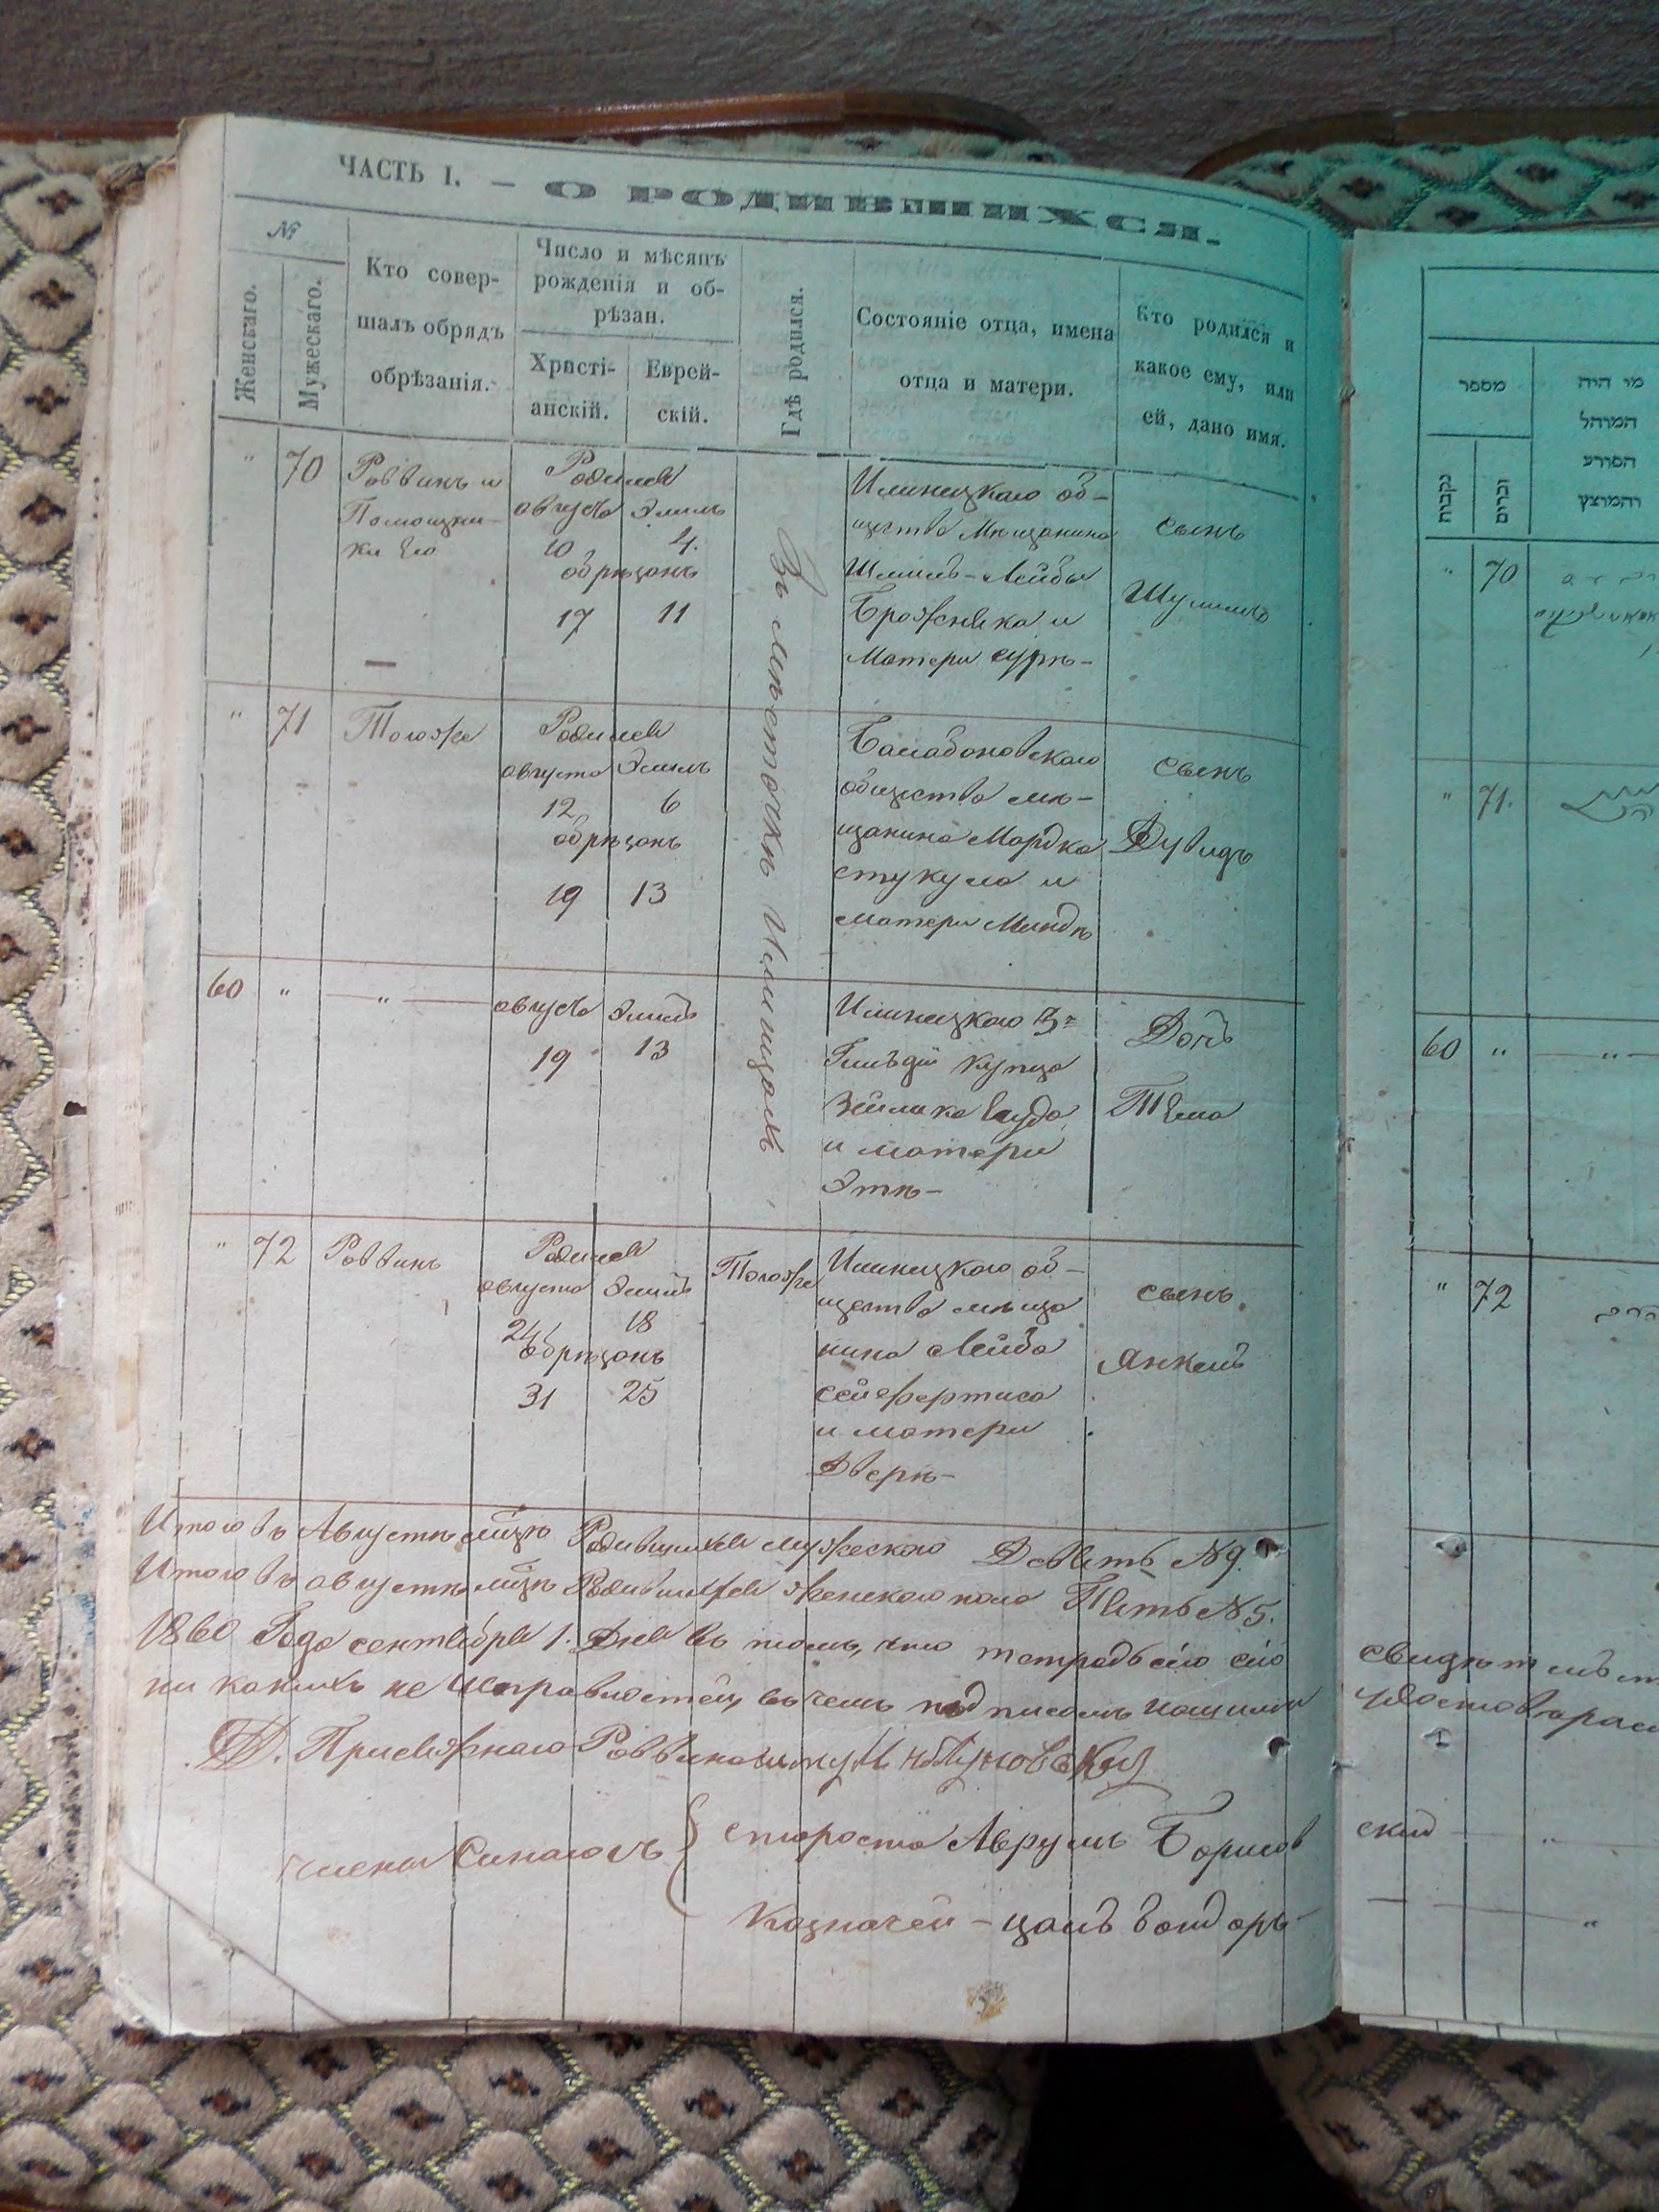 ЧАСТЬ I. — О РОДИВШИХСЯ.
№
Женскаго.
Мужескаго.
Кто совер-
шалъ обрядъ
обрѣзанія.
Число и мѣсяцъ
рожденія и об-
рѣзан.
Христі-
анскій.
Еврей-
скій.
Гдѣ родился.
Состояніе отца, имена
отца и матери.
Кто родился и
какое ему, или
ей, дано имя.
" 70
Раввинъ и
Помощни-
ки Его
Родился
августа Элилъ
10 4.
обрѣзанъ
17 11
Въ мѣсточкѣ Илинцахъ
Илинецкаго об-
щества Мѣщанина
Шмиль-Лейбы
Бронсника и
Матери Сурѣ-
сынъ
Шулимъ
" 71
Тогоже
Родился
августа Элилъ
12 6
обрѣзанъ
19 13
Балабановскаго
общества мѣ-
щанина Мордка
стукула и
матери Миндѣ
сынъ
Дувидъ
60 " — " —
августа Элилъ
19 13
Илинецкаго 3й
Гильдіи купца
Зейлика
и матери
Этѣ-
Дочь
" 72
Раввинъ
Родился
августа Элилъ
24 18
обрѣзанъ
31 25
Тогоже
Илинецкаго об-
щества мѣща
нина Лейба
и матери
Двѣрѣ-
сынъ
Янкель
Итого въ Августѣ мцѣ Родившихся мужескаго Девять №9.
Итого въ августѣ мцѣ Родившихся женскаго пола Пять №5.
1860 Года сентября 1. Дня въ томъ, что тетрадь сію
ни какихъ не исправностей, въ чемъ подписомъ нашимъ
Д. Присяжнаго Раввина
члены Синагогъ { староста Аврумъ Борисов
Казначей -
מספר
נקבות
זכרים
מי היה
המוהל
הפורע
והמוצץ
" 70
" 71.
60 " — " —
" 72
свидѣтельст
скій — "
— "